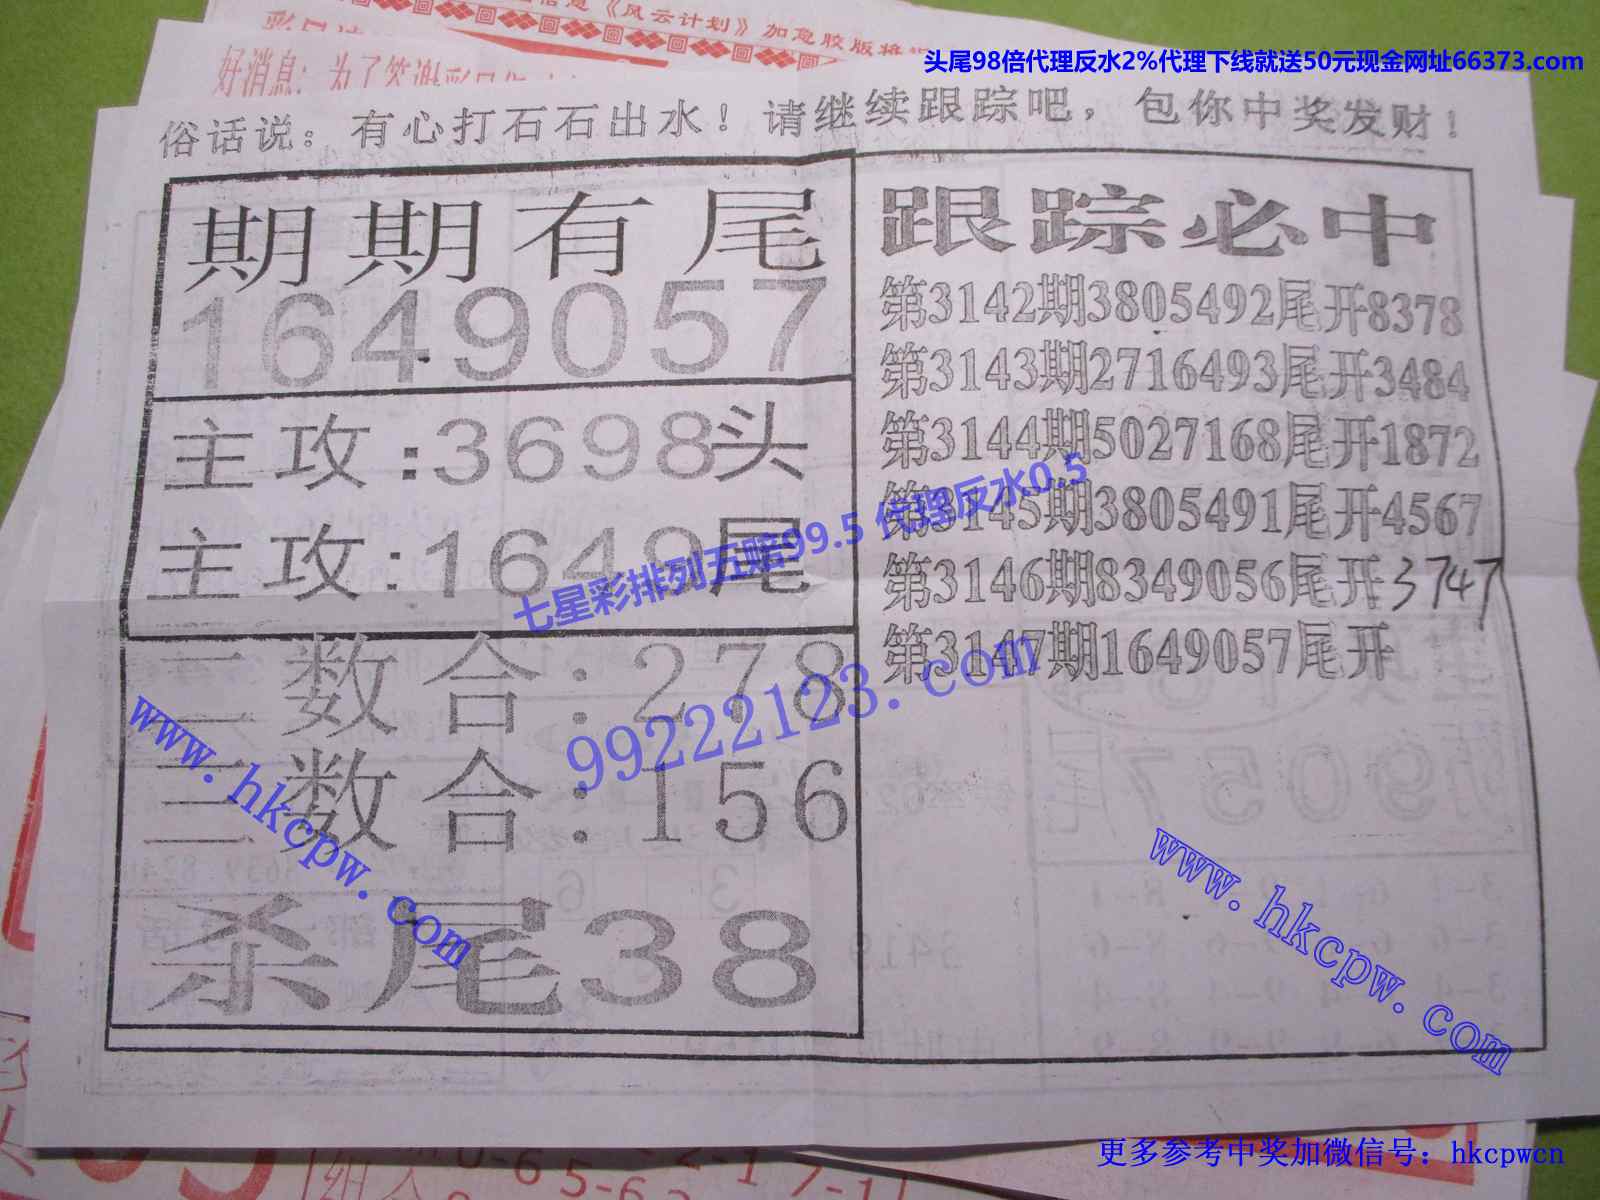 信息《风云计划》加急胶版将
头尾98倍代理反水2%代理下线就送50元现金网址66373.com
好消息:为了答谢彩民
俗话说:有心打石石出水!请继续跟踪吧,包你中奖发财!
期期有尾
1649057
主攻:3698头
主攻:1649尾
二数合:278
三数合:156
杀尾38
跟踪必中
第3142期3805492尾开8378
第3143期2716493尾开3484
第3144期5027168尾开1872
第3145期3805491尾开4567
第3146期8349056尾开3747
第3147期1649057尾开
七星彩排列五赔99.5 代理反水0.5
99222123.com
www.hkcpw.com
www.hkcpw.com
更多参考中奖加微信号:hkcpwcn